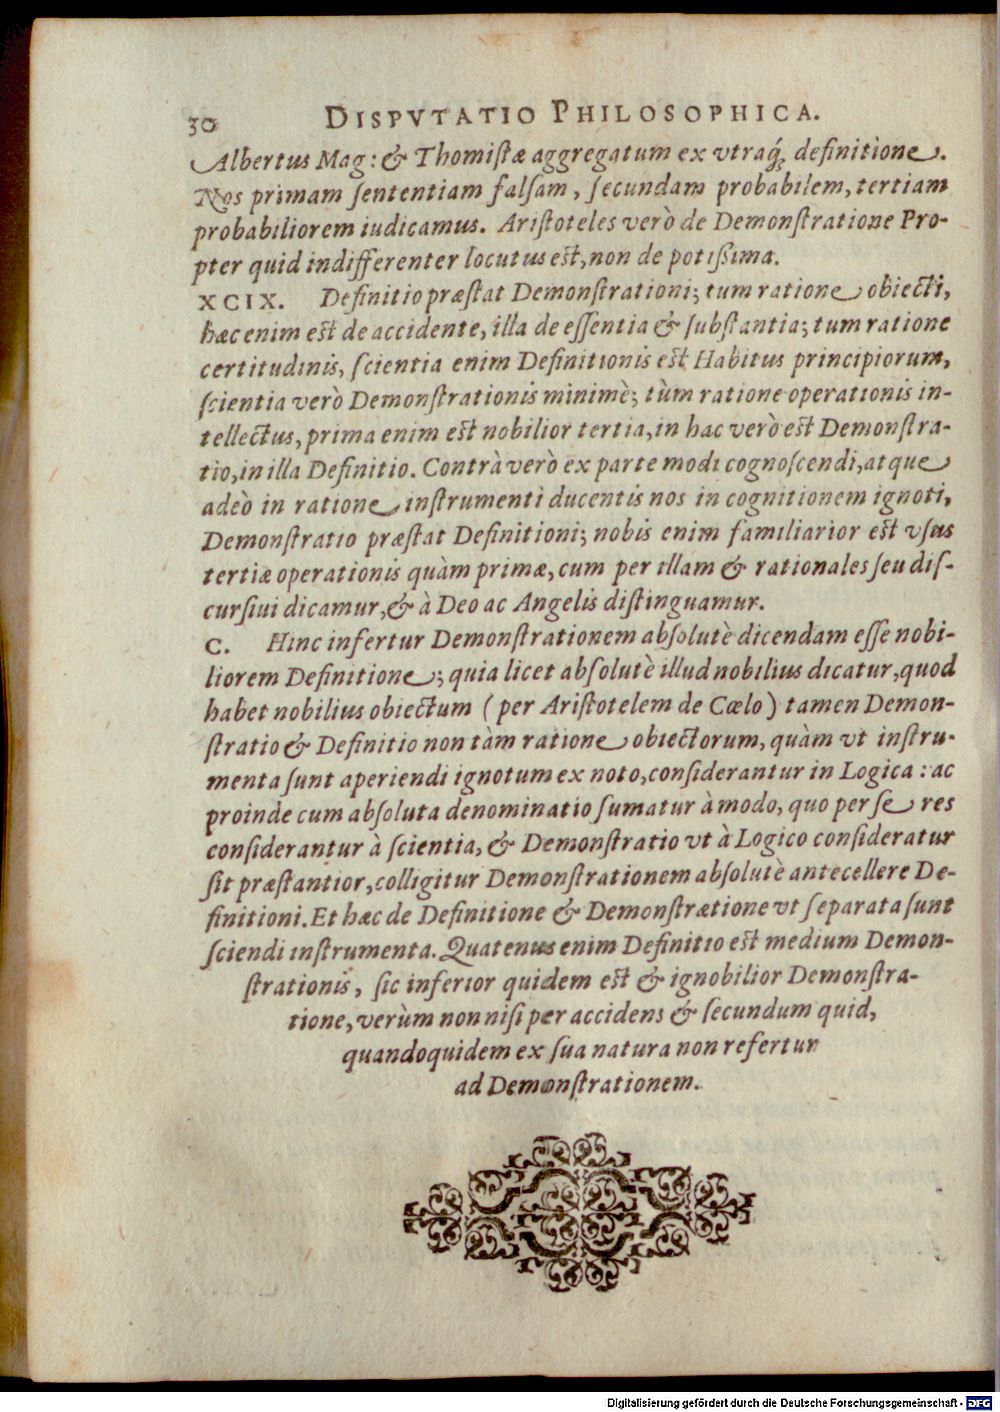 30 DISPVTATIO PHILOSOPHICA.
Albertus Mag: & Thomiſtæ aggregatum ex vtraq́; definitione.
Nos primam ſententiam falſam, ſecundam probabilem, tertiam
probabiliorem iudicamus. Ariſtoteles verò de Demonſtratione Pro-
pter quid indifferenter locutus eſt, non de potiſsima.
XCIX. Definitio præſtat Demonſtrationi; tum ratione obiecti,
hæc enim eſt de accidente, illa de eſſentia & ſubſtantia; tum ratione
certitudinis, ſcientia enim Definitionis eſt Habitus principiorum,
ſcientia verò Demonſtrationis minimè; tùm ratione operationis in-
tellectus, prima enim eſt nobilior tertia, in hac verò eſt Demonſtra-
tio, in illa Definitio. Contrà verò ex parte modi cognoſcendi, atque
adeò in ratione instrumenti ducentis nos in cognitionem ignoti,
Demonſtratio præſtat Definitioni; nobis enim familiarior eſt vſus
tertiæ operationis quàm primæ, cum per illam & rationales ſeu diſ-
curſiui dicamur, & à Deo ac Angelis diſtinguamur.
C. Hinc infertur Demonſtrationem abſolutè dicendam eſſe nobi-
liorem Definitione; quia licet abſolutè illud nobilius dicatur, quod
habet nobilius obiectum ( per Ariſtotelem de Cœlo ) tamen Demon-
ſtratio & Definitio non tàm ratione obiectorum, quàm vt inſtru-
menta ſunt aperiendi ignotum ex noto, conſiderantur in Logica : ac
proinde cum abſoluta denominatio ſumatur à modo, quo per ſe res
conſiderantur à ſcientia, & Demonſtratio vt à Logico conſideratur
ſit præſtantior, colligitur Demonſtrationem abſolutè antecellere De-
finitioni. Et hæc de Definitione & Demonſtrætione vt ſeparata ſunt
ſciendi inſtrumenta. Quatenus enim Definitio eſt medium Demon-
ſtrationis, ſic inferior quidem eſt & ignobilior Demonſtra-
tione, verùm non niſi per accidens & ſecundum quid,
quandoquidem ex ſua natura non refertur
ad Demonſtrationem.
Digitalisierung gefördert durch die Deutsche Forschungsgemeinschaft - DFG